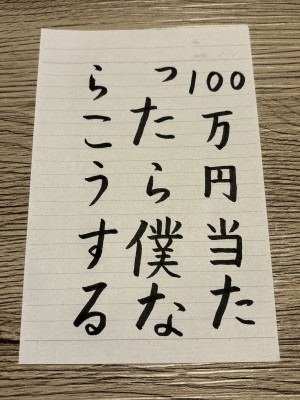 100万円当た
ったら僕な
らこうする